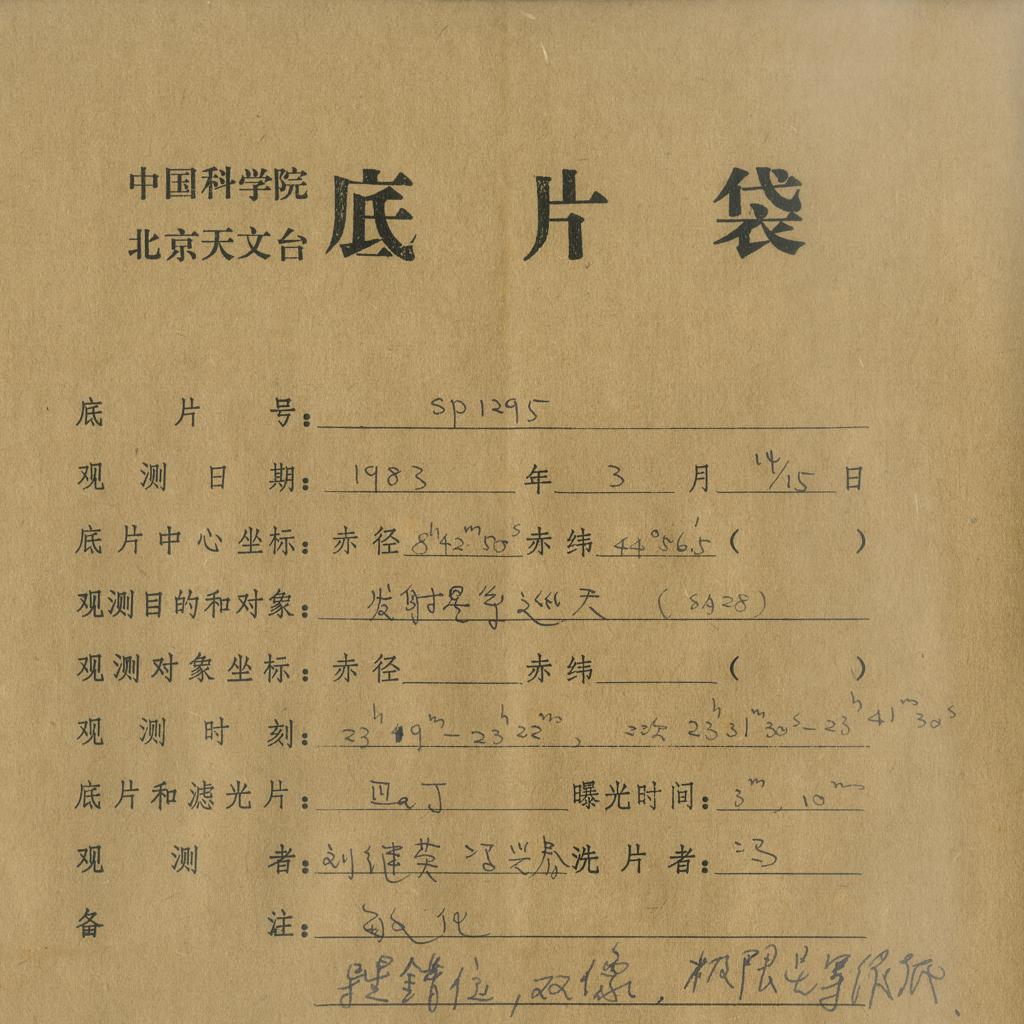 中国科学院
北京天文台
底片袋
底片号: SP1295
观测日期: 1983年3月14/15日
底片中心坐标: 赤径 8h42m50s 赤纬 44°56.'5 ( )
观测目的和对象: 发射星等巡天 (SA28)
观测对象坐标: 赤径 赤纬 ( )
观测时刻: 23h19m-23h22m, 二次 23h31m30s-23h41m30s
底片和滤光片: Ⅲa J 曝光时间: 3m, 10m
观测者: 刘继英 冯兴春 洗片者: 冯
备注: 敏化
导星错位, 双像, 极限星等很低.